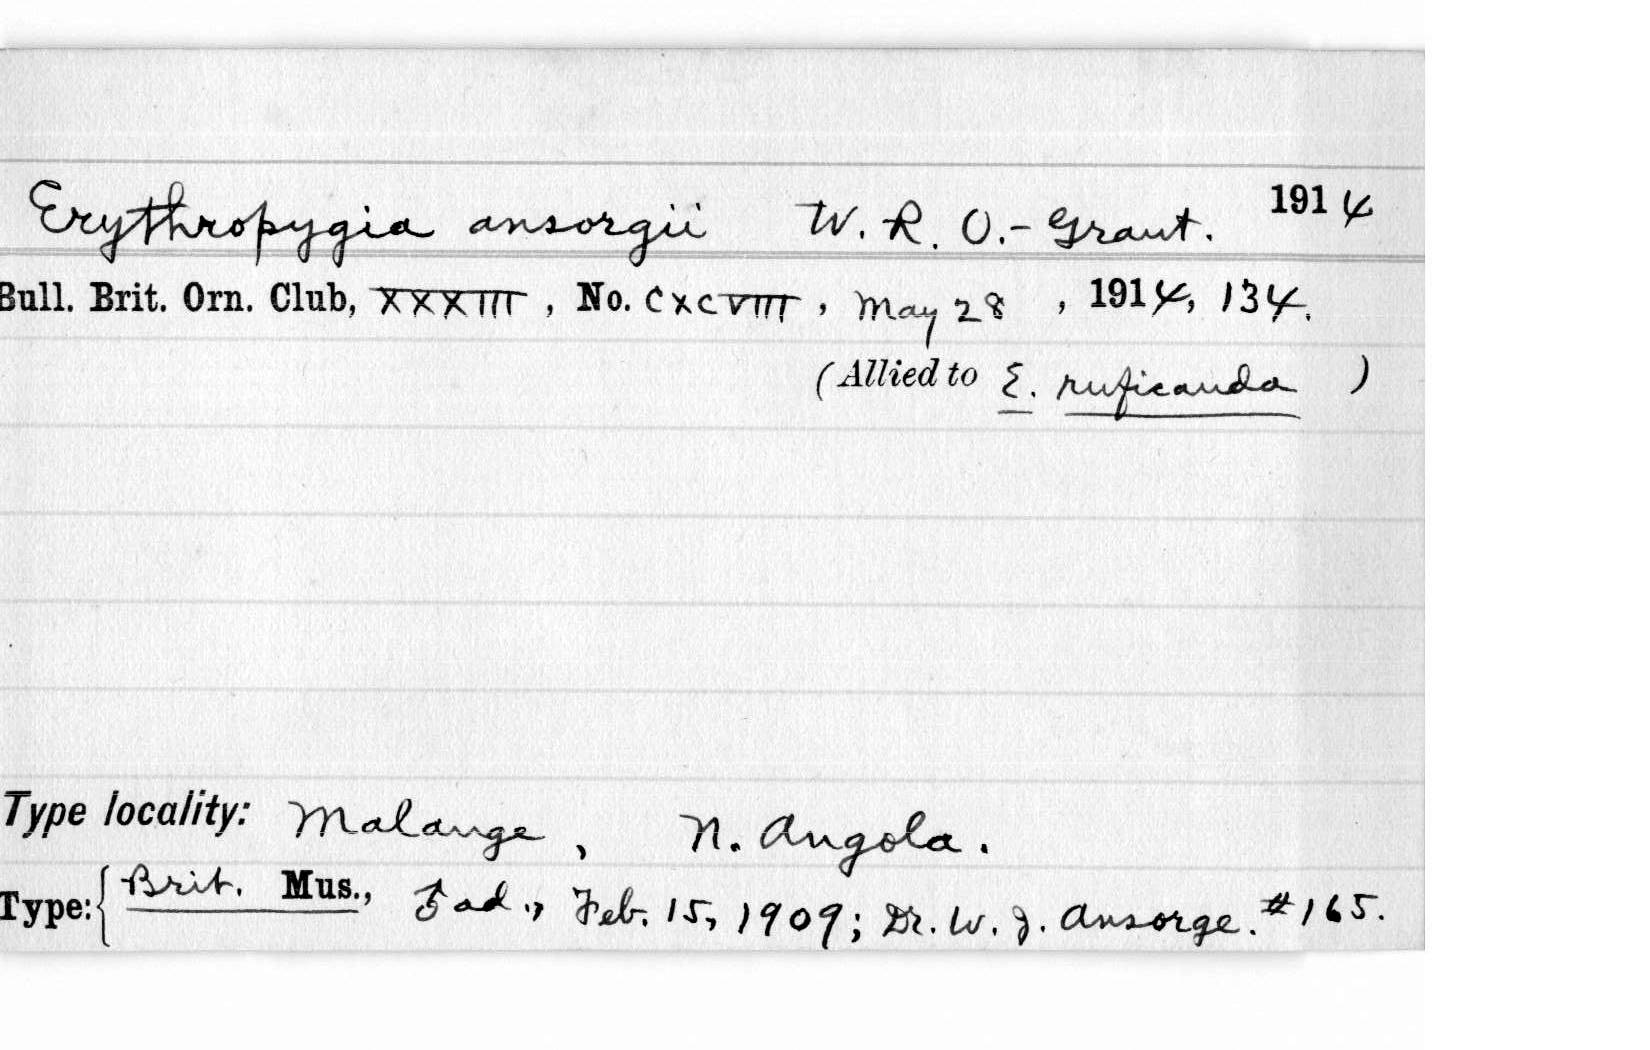 Erythropygia ansorgii W. R. O.-Grant. 1914
Bull. Brit. Orn. Club, XXXIII, No. CXCVIII, May 28, 1914, 134.
(Allied to E. ruficauda)
Type locality: Malange, N. Angola.
Type: { Brit. Mus., ♂ ad., Feb. 15, 1909; Dr. W. J. Ansorge. #165.